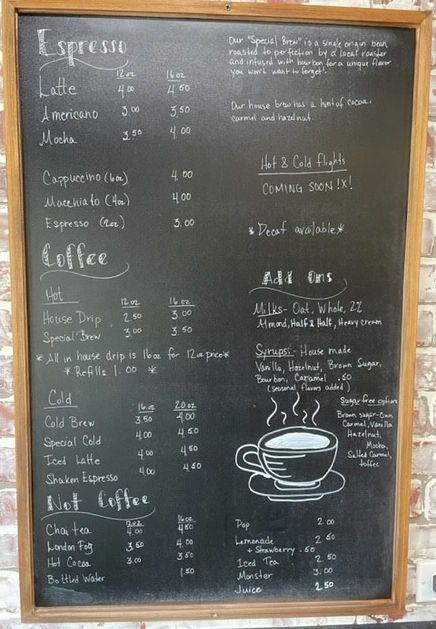 Espresso
12oz 16oz
Latte 4.00 4.50
Americano 3.00 3.50
Mocha 3.50 4.00
Cappuccino (6oz) 4.00
Macchiato (4oz) 4.00
Espresso (2oz) 3.00
Coffee
Hot
12oz 16oz
House Drip 2.50 3.00
Special Brew 3.00 3.50
*All in house drip is 16oz for 12oz price*
*Refills 1.00 *
Cold
16oz 20oz
Cold Brew 3.50 4.00
Special Cold 4.00 4.50
Iced Latte 4.00 4.50
Shaken Espresso 4.00 4.50
Not Coffee
12oz 16oz
Chai tea 4.00 4.50
London Fog 3.50 4.00
Hot Cocoa 3.00 3.50
Bottled Water 1.50
Our "Special Brew" is a single origin bean
roasted to perfection by a local roaster
and infused with bourbon for a unique flavor
you won't want to forget.
Our house brew has a hint of cocoa,
carmel and hazelnut.
Hot & Cold flights
COMING SOON!
*Decaf available*
Add Ons
Milks- Oat, Whole, 2%
Almond, Half & Half, Heavy cream
Syrups- House made
Vanilla, Hazelnut, Brown Sugar,
Bourbon, Caramel .50
(seasonal flavors added)
Sugar free options
Brown sugar-Cinn
Carmel, Vanilla
Hazelnut,
Mocha,
Salted Carmel,
toffee
Pop 2.00
Lemonade 2.50
+ Strawberry .50
Iced Tea 2.50
Monster 3.00
Juice 2.50